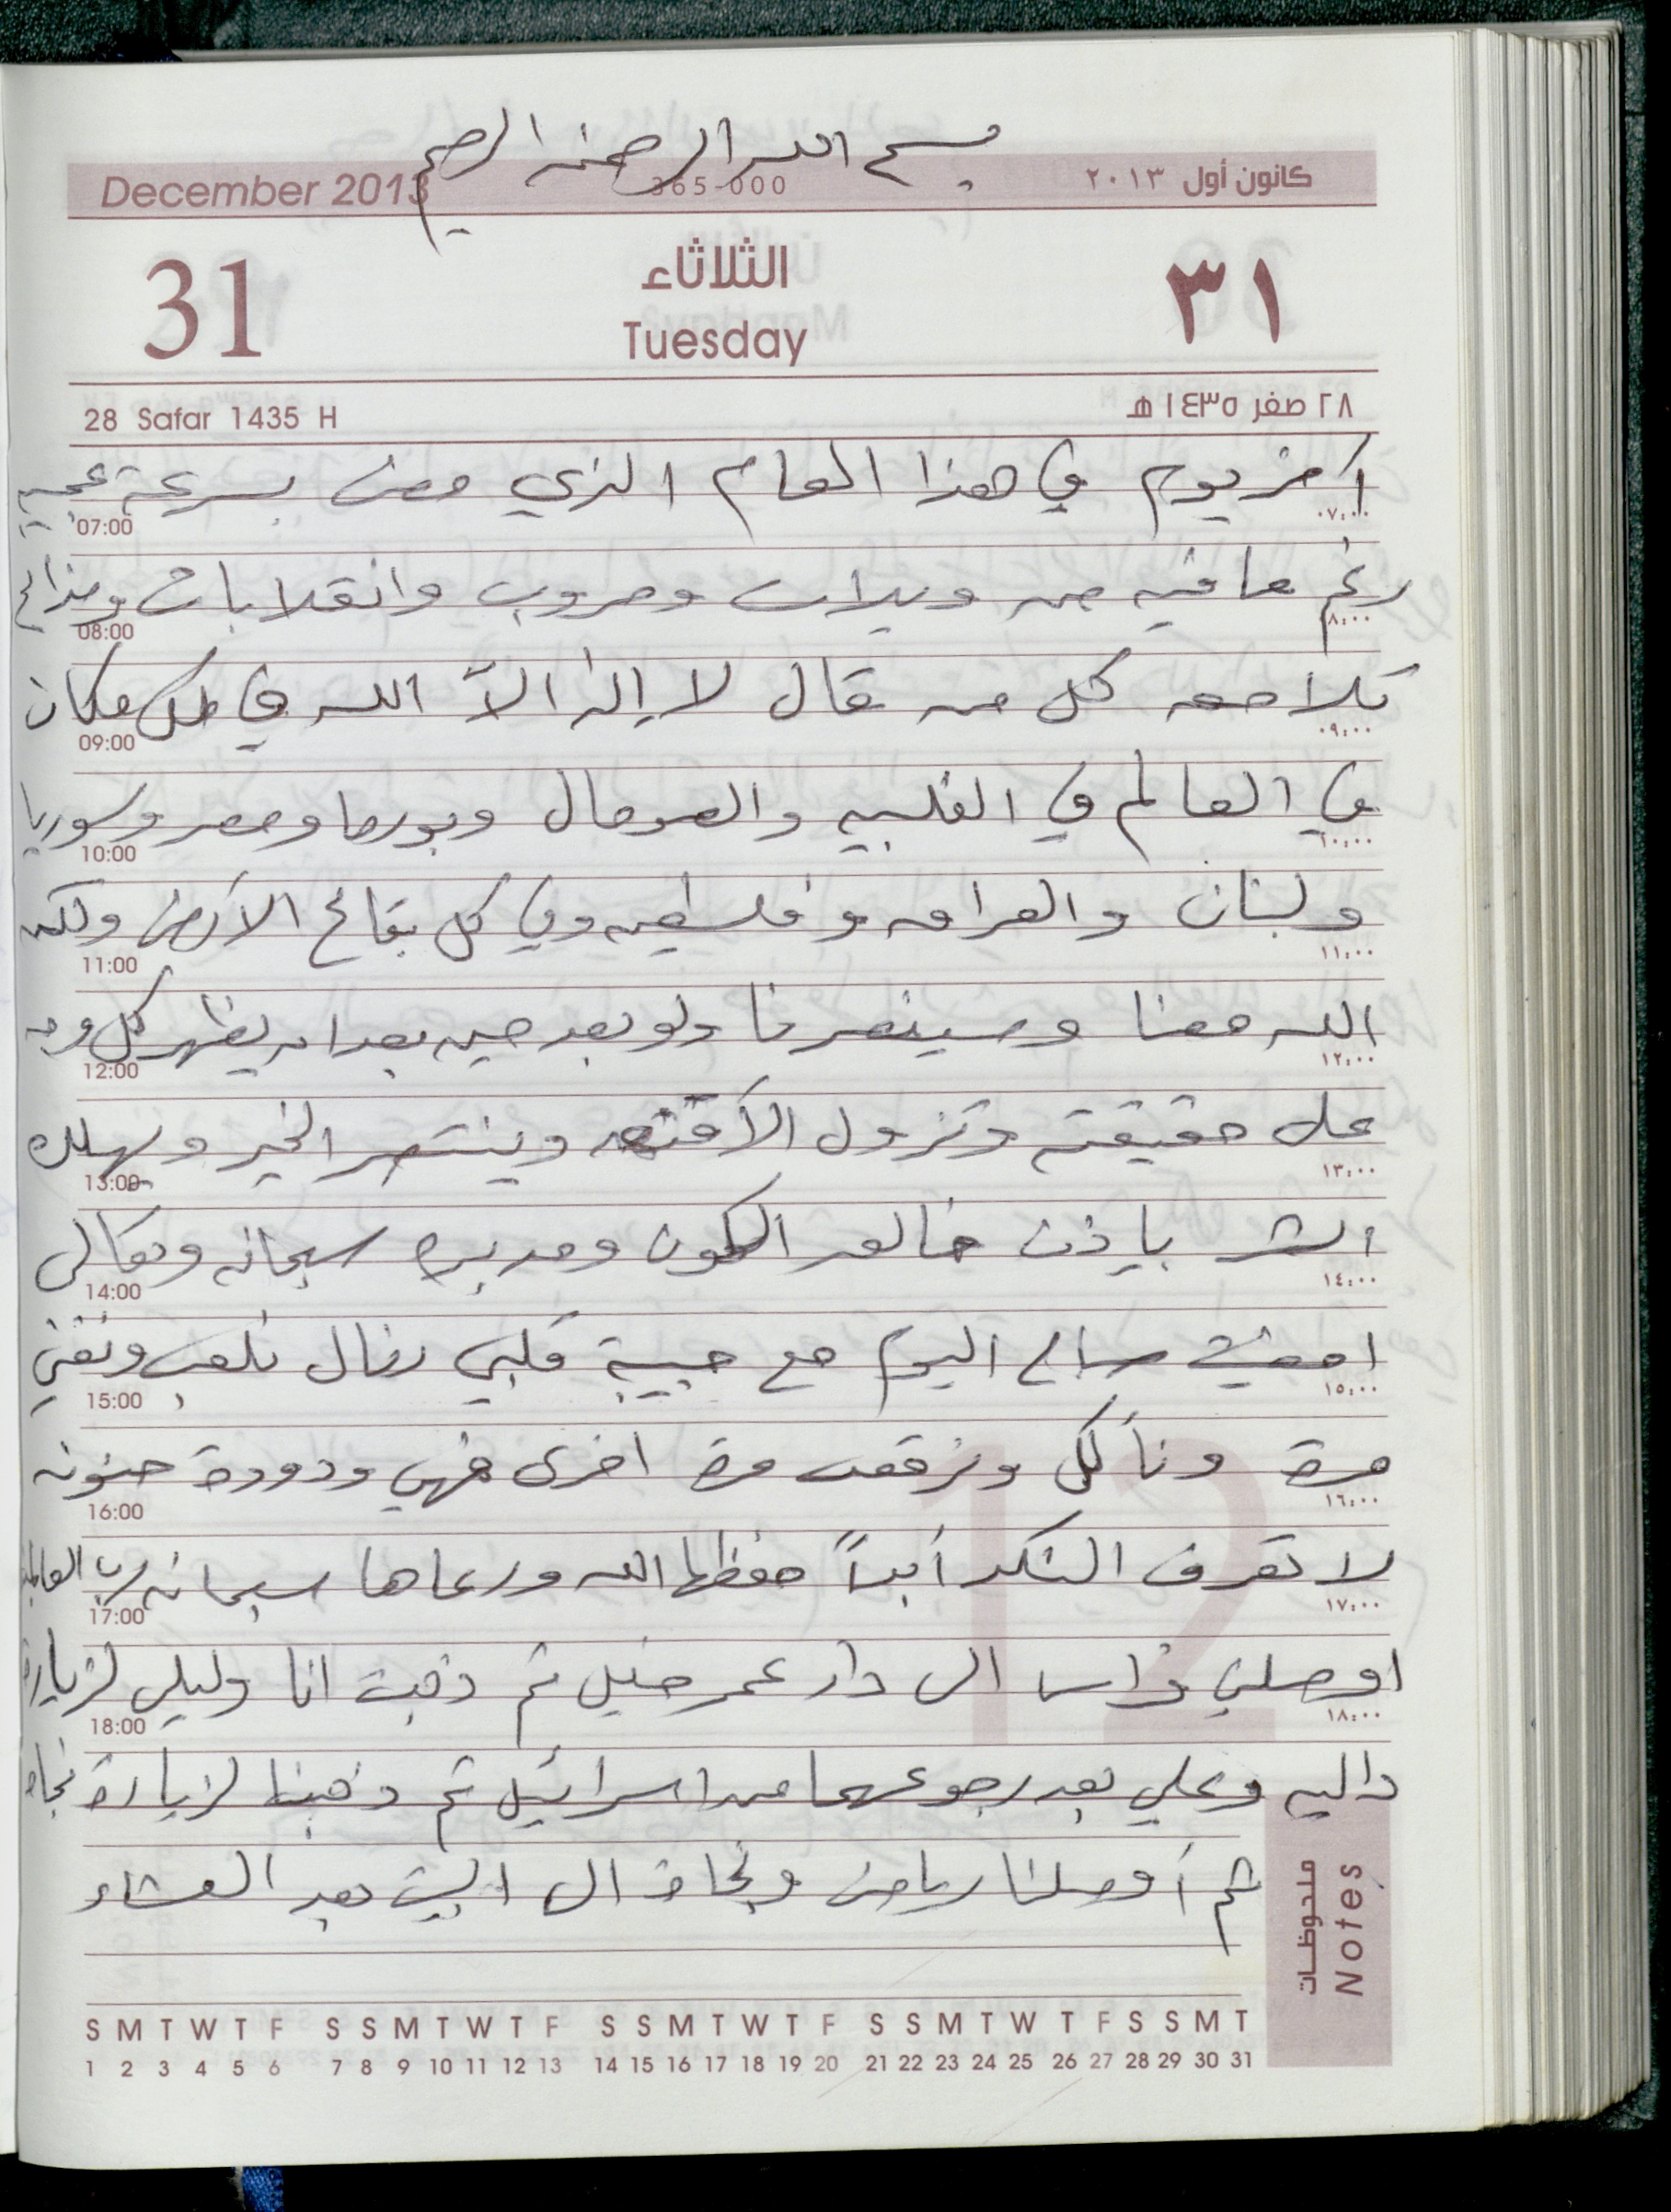 بسم الله الرحمن الرحيم
December 2013 365-000 كانون أول ٢٠١٣
31 الثلاثاء ٣١
Tuesday
28 Safar 1435 H ٢٨ صفر ١٤٣٥ هـ
آخر يوم في هذا العام الذي مضى بسرعة عجيبه
07:00 ٠٧:٠٠
رغم ما فيه من ويلات وحروب وانقلابات ومذابح
08:00 ٠٨:٠٠
تلاحق كل من قال لا إله الاّ الله في كل مكان
09:00 ٠٩:٠٠
في العالم في الفلبين والصومال وبورما ومصر وسوريا
10:00 ١٠:٠٠
ولبنان والعراق وفلسطين وفي كل بقاع الأرض ولكن
11:00 ١١:٠٠
الله معنا وسينصرنا ولو بعد حين بعد ان يظهر كل وجه
12:00 ١٢:٠٠
على حقيقته وتزول الأقنعه وينتصر الخير ويهلك
13:00 ١٣:٠٠
الشر بإذن خالق الكون ومدبره سبحانه وتعالى
14:00 ١٤:٠٠
امضيت صباح اليوم مع حبيبة قلبي رنال نلعب ونغني
15:00 ١٥:٠٠
مرة ونأكل ونرقص مرة اخرى فهي ودودة حنونه
16:00 ١٦:٠٠
لا تعرف النكد أبداً حفظها الله ورعاها سبحانه رب العالمين
17:00 ١٧:٠٠
اوصلني فراس الى دار عمر خليل ثم ذهبت انا وليلى لزيارة
18:00 ١٨:٠٠
داليه وعلي بعد رجوعهما من اسرائيل ثم ذهبنا لزيارة نجاة
ثم أوصلنا رياض ونجاة الى البيت بعد العشاء
ملحوظات Notes
S M T W T F S S M T W T F S S M T W T F S S M T W T F S S M T
1 2 3 4 5 6 7 8 9 10 11 12 13 14 15 16 17 18 19 20 21 22 23 24 25 26 27 28 29 30 31
12